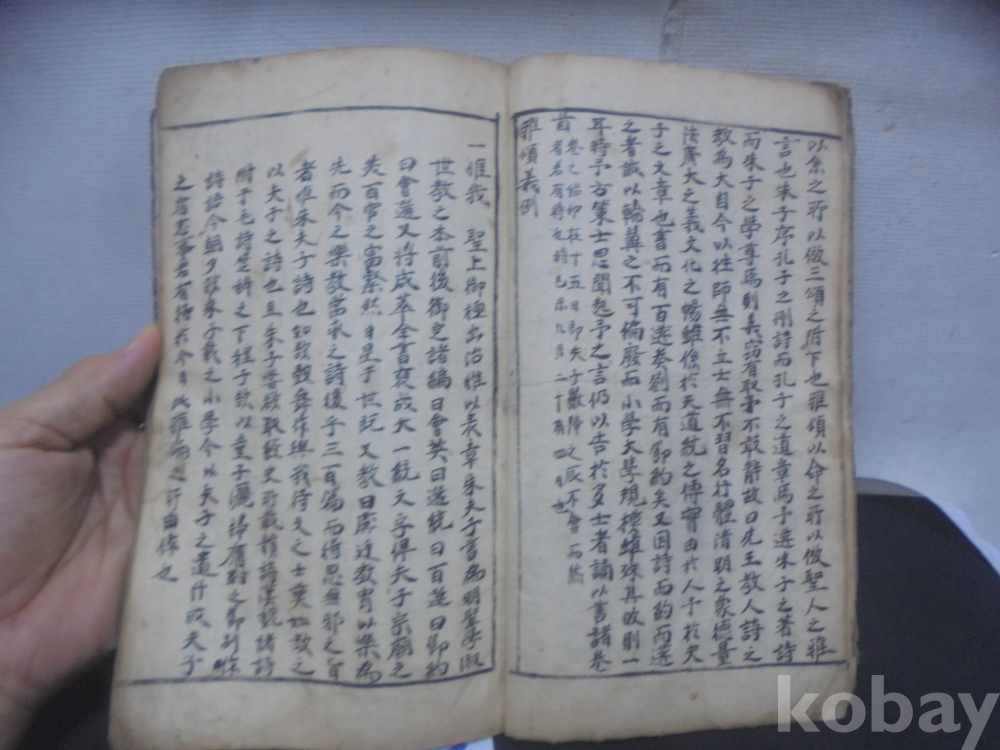 以系之所以倣三頌之附下也雅頌以命之所以倣聖人之雅
言也朱子序孔子之刪詩而孔子之道章焉予選朱子之著詩
而朱子之學尊焉則義竊有取焉不敢辭故曰先王教人詩之
教為大自今以往師無不立士無不習名行體清明之象德量
法廣大之義文化之暢雖係於天道統之傳實由於人予於夫
子之文章也書而有百選奏劄而有節約矣又因詩而約而選
之者該以輪翼之不可偏廢而小學大學規模雖殊其致則一
耳時予方策士思聞起予之言仍以告於多士者誦以書諸卷
首
雅頌義例
一惟我 聖上御極出治惟以表章朱夫子書為明聖學淑
世教之本前後御定諸編曰會英曰選統曰百選曰節約
曰會選又將成萃全書裒成大一統文字俾夫子宗廟之
美百官之富粲然日星于世既又教曰庠廷教冑以樂為
先而今之樂教當求之詩後乎三百篇而得思無邪之旨
者惟朱夫子詩也如鼓鼓舞作興我待文之士莫如教之
以夫子之詩也且朱子嘗欲取經史所載韻語漢魏諸詩
附于毛詩楚詩之下程子欲以童子灑掃應對之節別作
詩語今朝夕歌朱子義之小學今以夫子之遺什成夫子
之志事若有待於今日此雅頌之所由作也